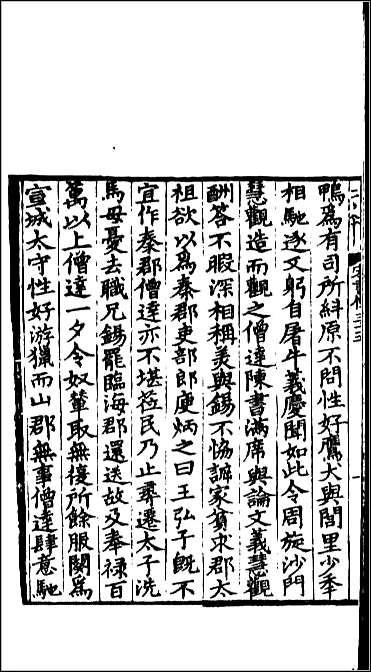 鴨爲有司所糾原不問性好鷹犬與閭里少年
相馳逐又躬自屠牛義慶聞如此令周旋沙門
慧觀造而觀之僧達陳書滿席與論文義慧觀
酬答不暇深相稱美與錫不恊訴家貧求郡太
祖欲以爲秦郡吏部郎庾炳之曰王弘子旣不
宜作秦郡僧達亦不堪莅民乃止尋遷太子洗
馬母憂去職兄錫罷臨海郡還送故及奉祿百
萬以上僧達一夕令奴輦取無復所餘服闋爲
宣城太守性好游獵而山郡無事僧達肆意馳